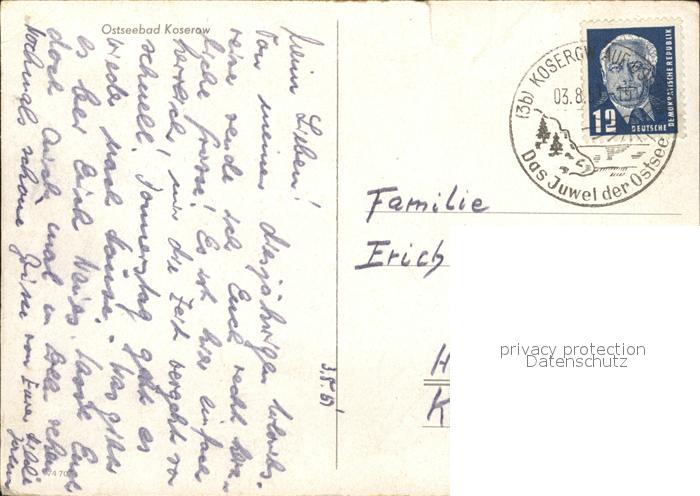 Ostseebad Koserow
Meine Lieben!
Von meiner diesjährigen Urlaubs-
reise sende ich Euch recht herz-
liche Grüße! Es ist hier einfach
herrlich, nur die Zeit vergeht so
schnell! Donnerstag geht es
wieder nach Hause. Was gibt
es bei Euch Neues? Lasst Euch
doch auch mal in sehen
Nochmals schöne Grüße von Eurer
3.8.61
(3b) KOSEROW AUF USEDOM
03.8.61-19
Das Juwel der Ostsee
12
DEUTSCHE
DEMOKRATISCHE REPUBLIK
Familie
Erich
H
K
privacy protection
Datenschutz